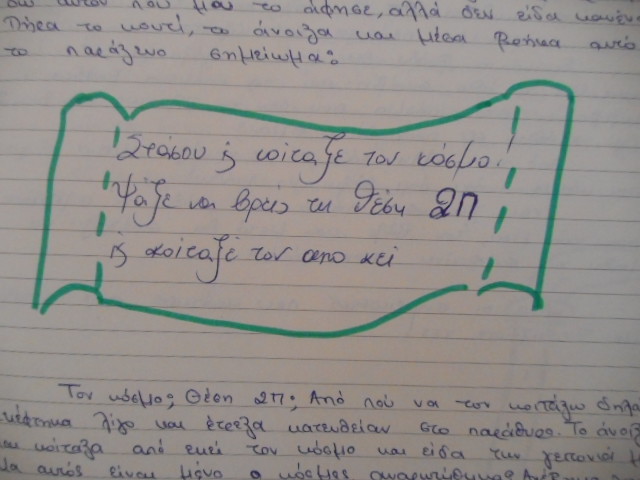 αυτόν που μου το άφησε, αλλά δεν είδα κανέν
Πήρα το κουτί, το άνοιξα και μέσα βρήκα αυτό
το παράξενο σημείωμα:
Στάσου ϗ κοίταξε τον κόσμο!
Ψάξε να βρεις τη θέση 2Π
ϗ κοίταξέ τον απο κει
Τον κόσμο; Θέση 2Π; Από πού να τον κοιτάξω δηλα
κέφτηκα λίγο και έτρεξα κατευθείαν στο παράθυρο. Το άνοιξ
και κοίταξα από εκεί τον κόσμο και είδα την γειτονιά μ
Μα αυτός είναι μόνο ο κόσμος αναρωτήθηκα;